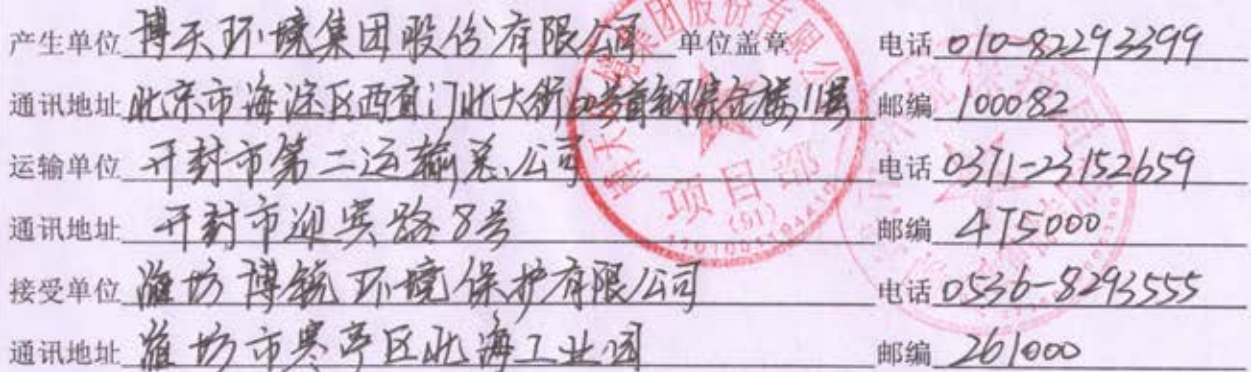 产生单位 博天环境集团股份有限公司 单位盖章 电话 010-82293399
通讯地址 北京市海淀区西直门北大街60号首钢综合楼11层 邮编 100082
运输单位 开封市第二运输总公司 电话 0371-23152659
通讯地址 开封市迎宾路8号 邮编 475000
接受单位 潍坊博锐环境保护有限公司 电话 0536-8293555
通讯地址 潍坊市寒亭区北海工业园 邮编 261000
博天环境集团股份有限公司
项目部
(91)